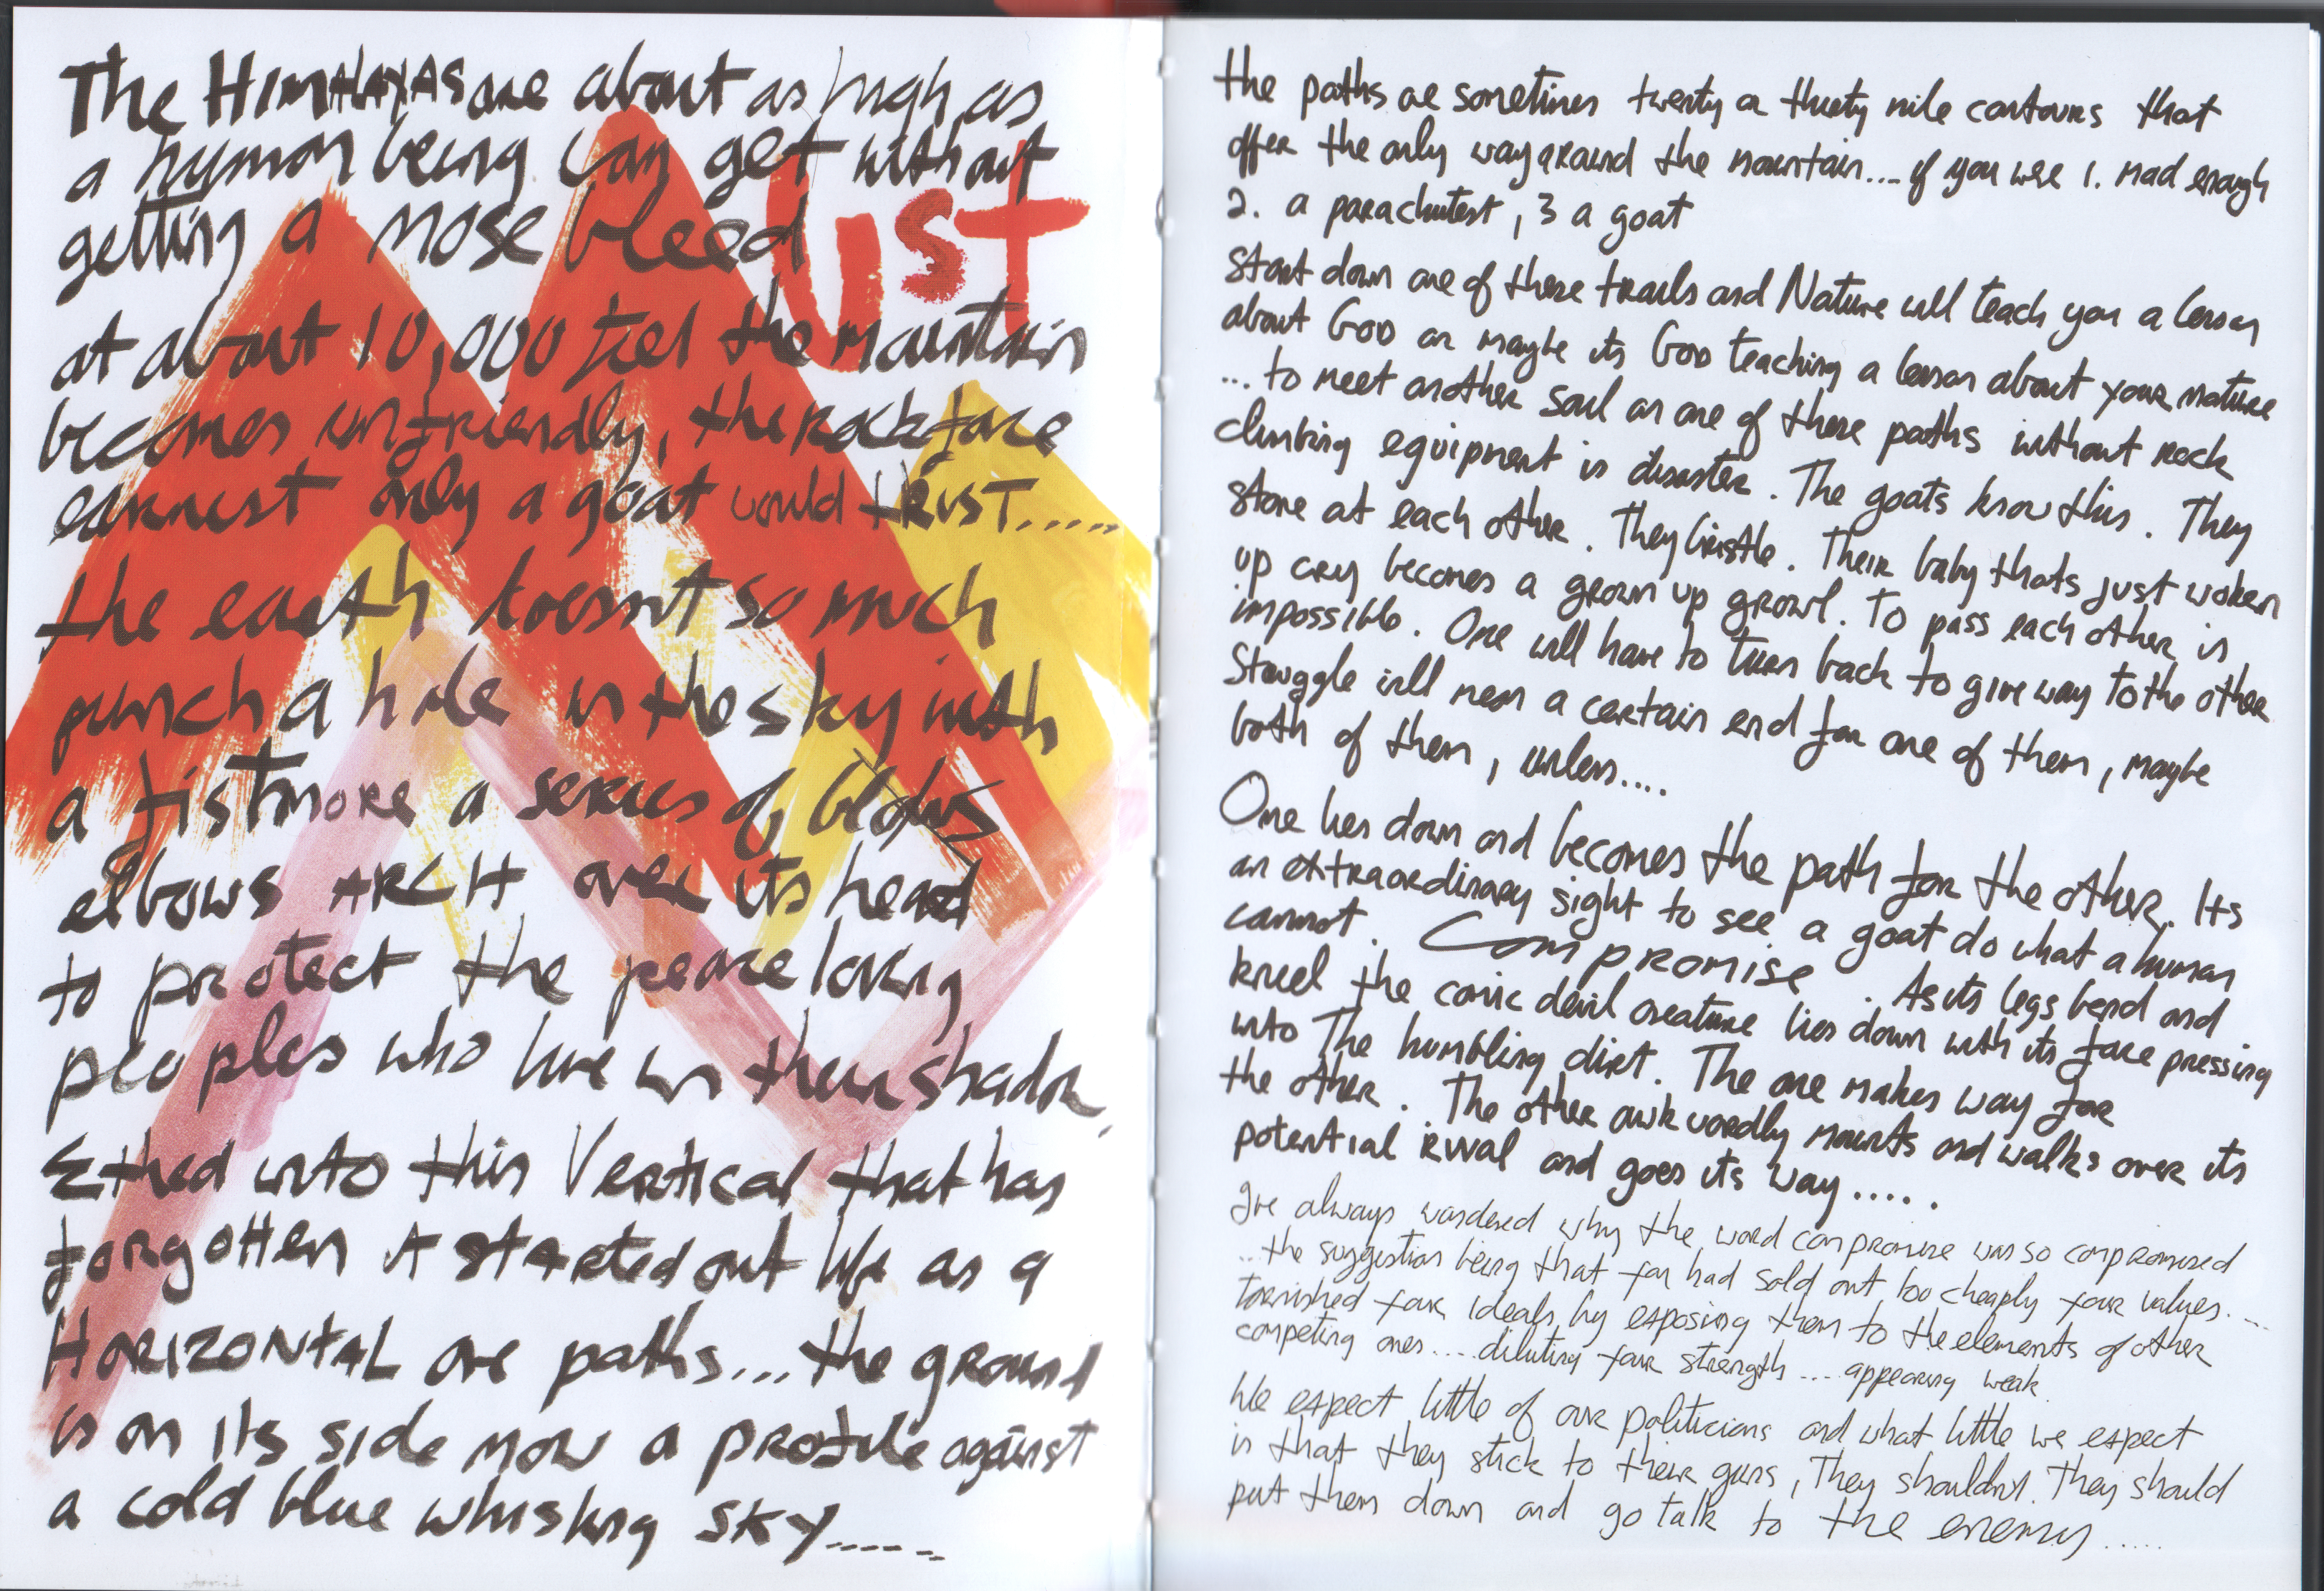 The HIMALAYAS are about as high as
a human being can get without
getting a nose bleed
UST
at about 10,000 feet the mountain
becomes unfriendly, the rock face
earnest only a goat would TRUST.....
the earth doesnt so much
punch a hole in the sky with
a fist more a series of blows
elbows ARCH over its head
to protect the peace loving
peoples who live in their shadow,
Etched into this Vertical that has
forgotten it started out life as a
HORIZONTAL are paths... the ground
is on its side now a profile against
a cold blue whiskey SKY......
the paths are sometimes twenty or thirty mile contours that
offer the only way around the mountain.... if you were 1. mad enough
2. a parachutest, 3 a goat
start down one of these trails and Nature will teach you a lesson
about GOD or maybe its GOD teaching a lesson about your nature
... to meet another soul on one of these paths without rock
climbing equipment is disaster. The goats know this. They
stare at each other. They bristle. Their baby thats just woken
up cry becomes a grown up growl. To pass each other is
impossible. One will have to turn back to give way to the other
Struggle will mean a certain end for one of them, maybe
both of them, unless....
One lies down and becomes the path for the other. Its
an extraordinary sight to see a goat do what a human
cannot. Compromise. As its legs bend and
kneel the comic devil creature lies down with its face pressing
into The humbling dirt. The one makes way for
the other. The other awkwardly mounts and walks over its
potential rival and goes its way.....
Ive always wondered why the word compromise was so compromised
...the suggestion being that you had sold out too cheaply your values....
tarnished your ideals by exposing them to the elements of other
competing ones.... diluting your strength.... appearing weak.
We expect little of our politicians and what little we expect
is that they stick to their guns, They shouldnt. They should
put them down and go talk to the enemy.....